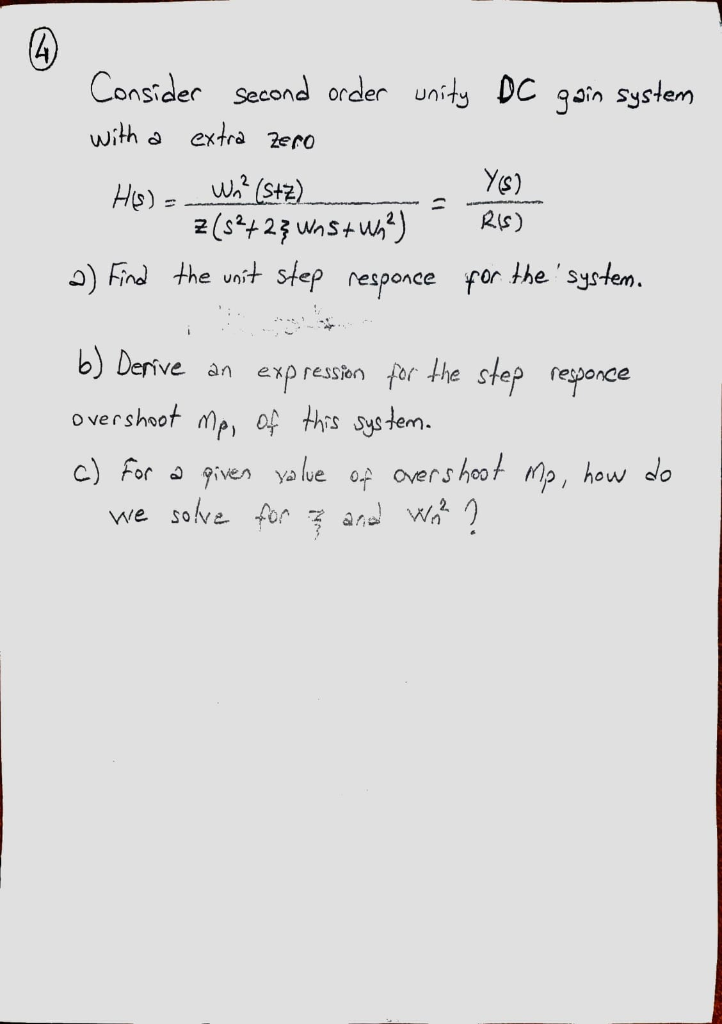 4
Consider second order unity DC gain system
with a extra zero
H(s) = Wn² (s+z) / z(s²+2ξWns+Wn²) = Y(s) / R(s)
a) Find the unit step responce for the system.
b) Derive an expression for the step responce
overshoot Mp, of this system.
c) For a given value of overshoot Mp, how do
we solve for ξ and Wn² ?